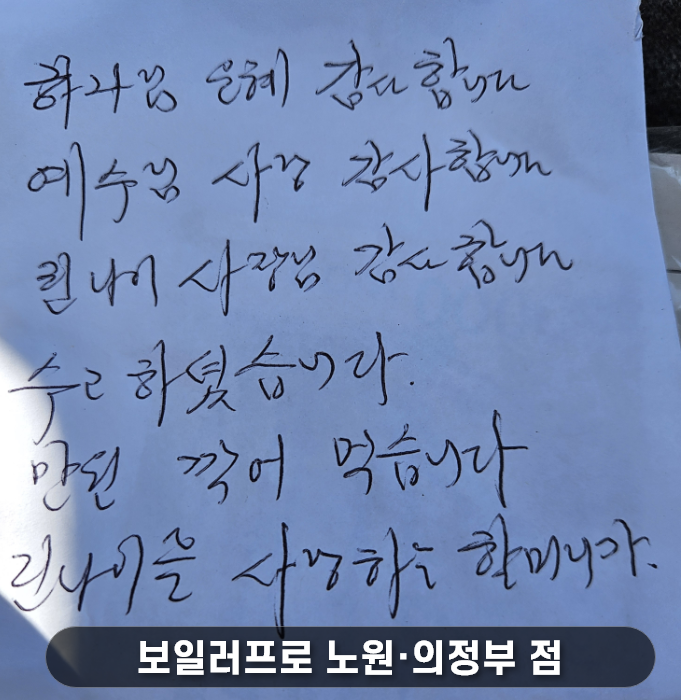 하나님 은혜 감사합니다
예수님 사랑 감사합니다
린나이 사장님 감사합니다
수고하셨습니다.
만원 깍어 먹습니다
린나이를 사랑하는 할머니가.
보일러프로 노원·의정부 점